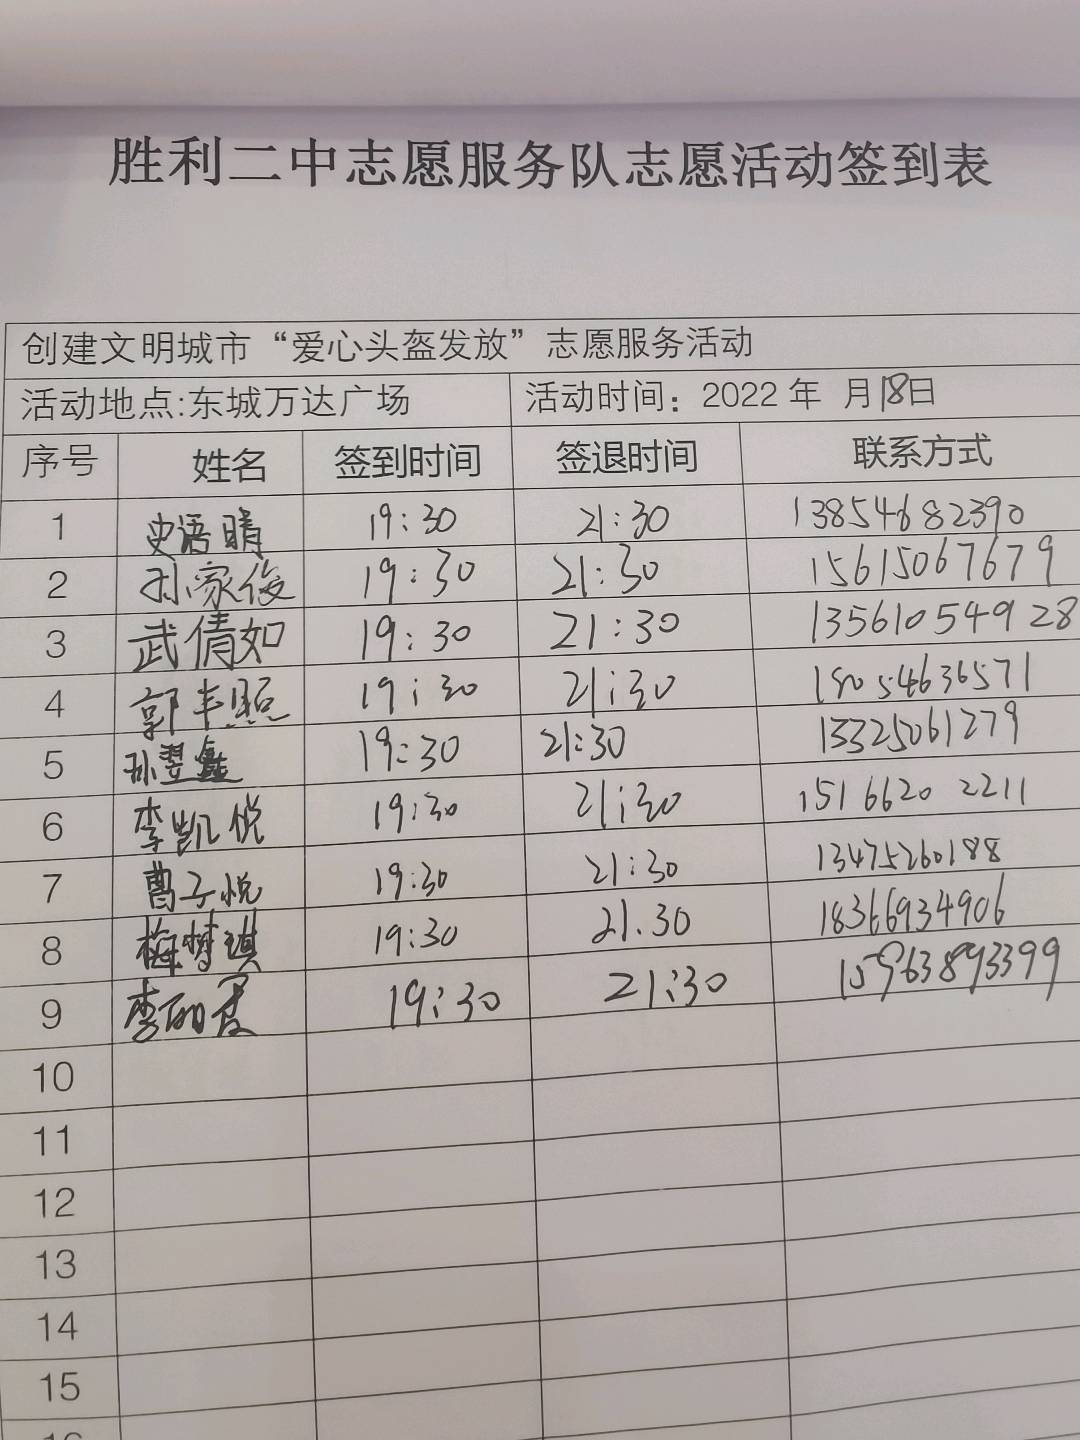 胜利二中志愿服务队志愿活动签到表
创建文明城市“爱心头盔发放”志愿服务活动
活动地点:东城万达广场 活动时间：2022 年 月18日
序号 姓名 签到时间 签退时间 联系方式
1 史语晴 19:30 21:30 13854682390
2 孙家俊 19:30 21:30 15615067679
3 武倩如 19:30 21:30 13561054928
4 郭丰照 19:30 21:30 18054636571
5 孙翌鑫 19:30 21:30 13325061279
6 李凯悦 19:30 21:30 15166202211
7 曹子悦 19:30 21:30 13475260188
8 梅梦琪 19:30 21.30 18366934906
9 李 19:30 21:30 15963893399
10
11
12
13
14
15